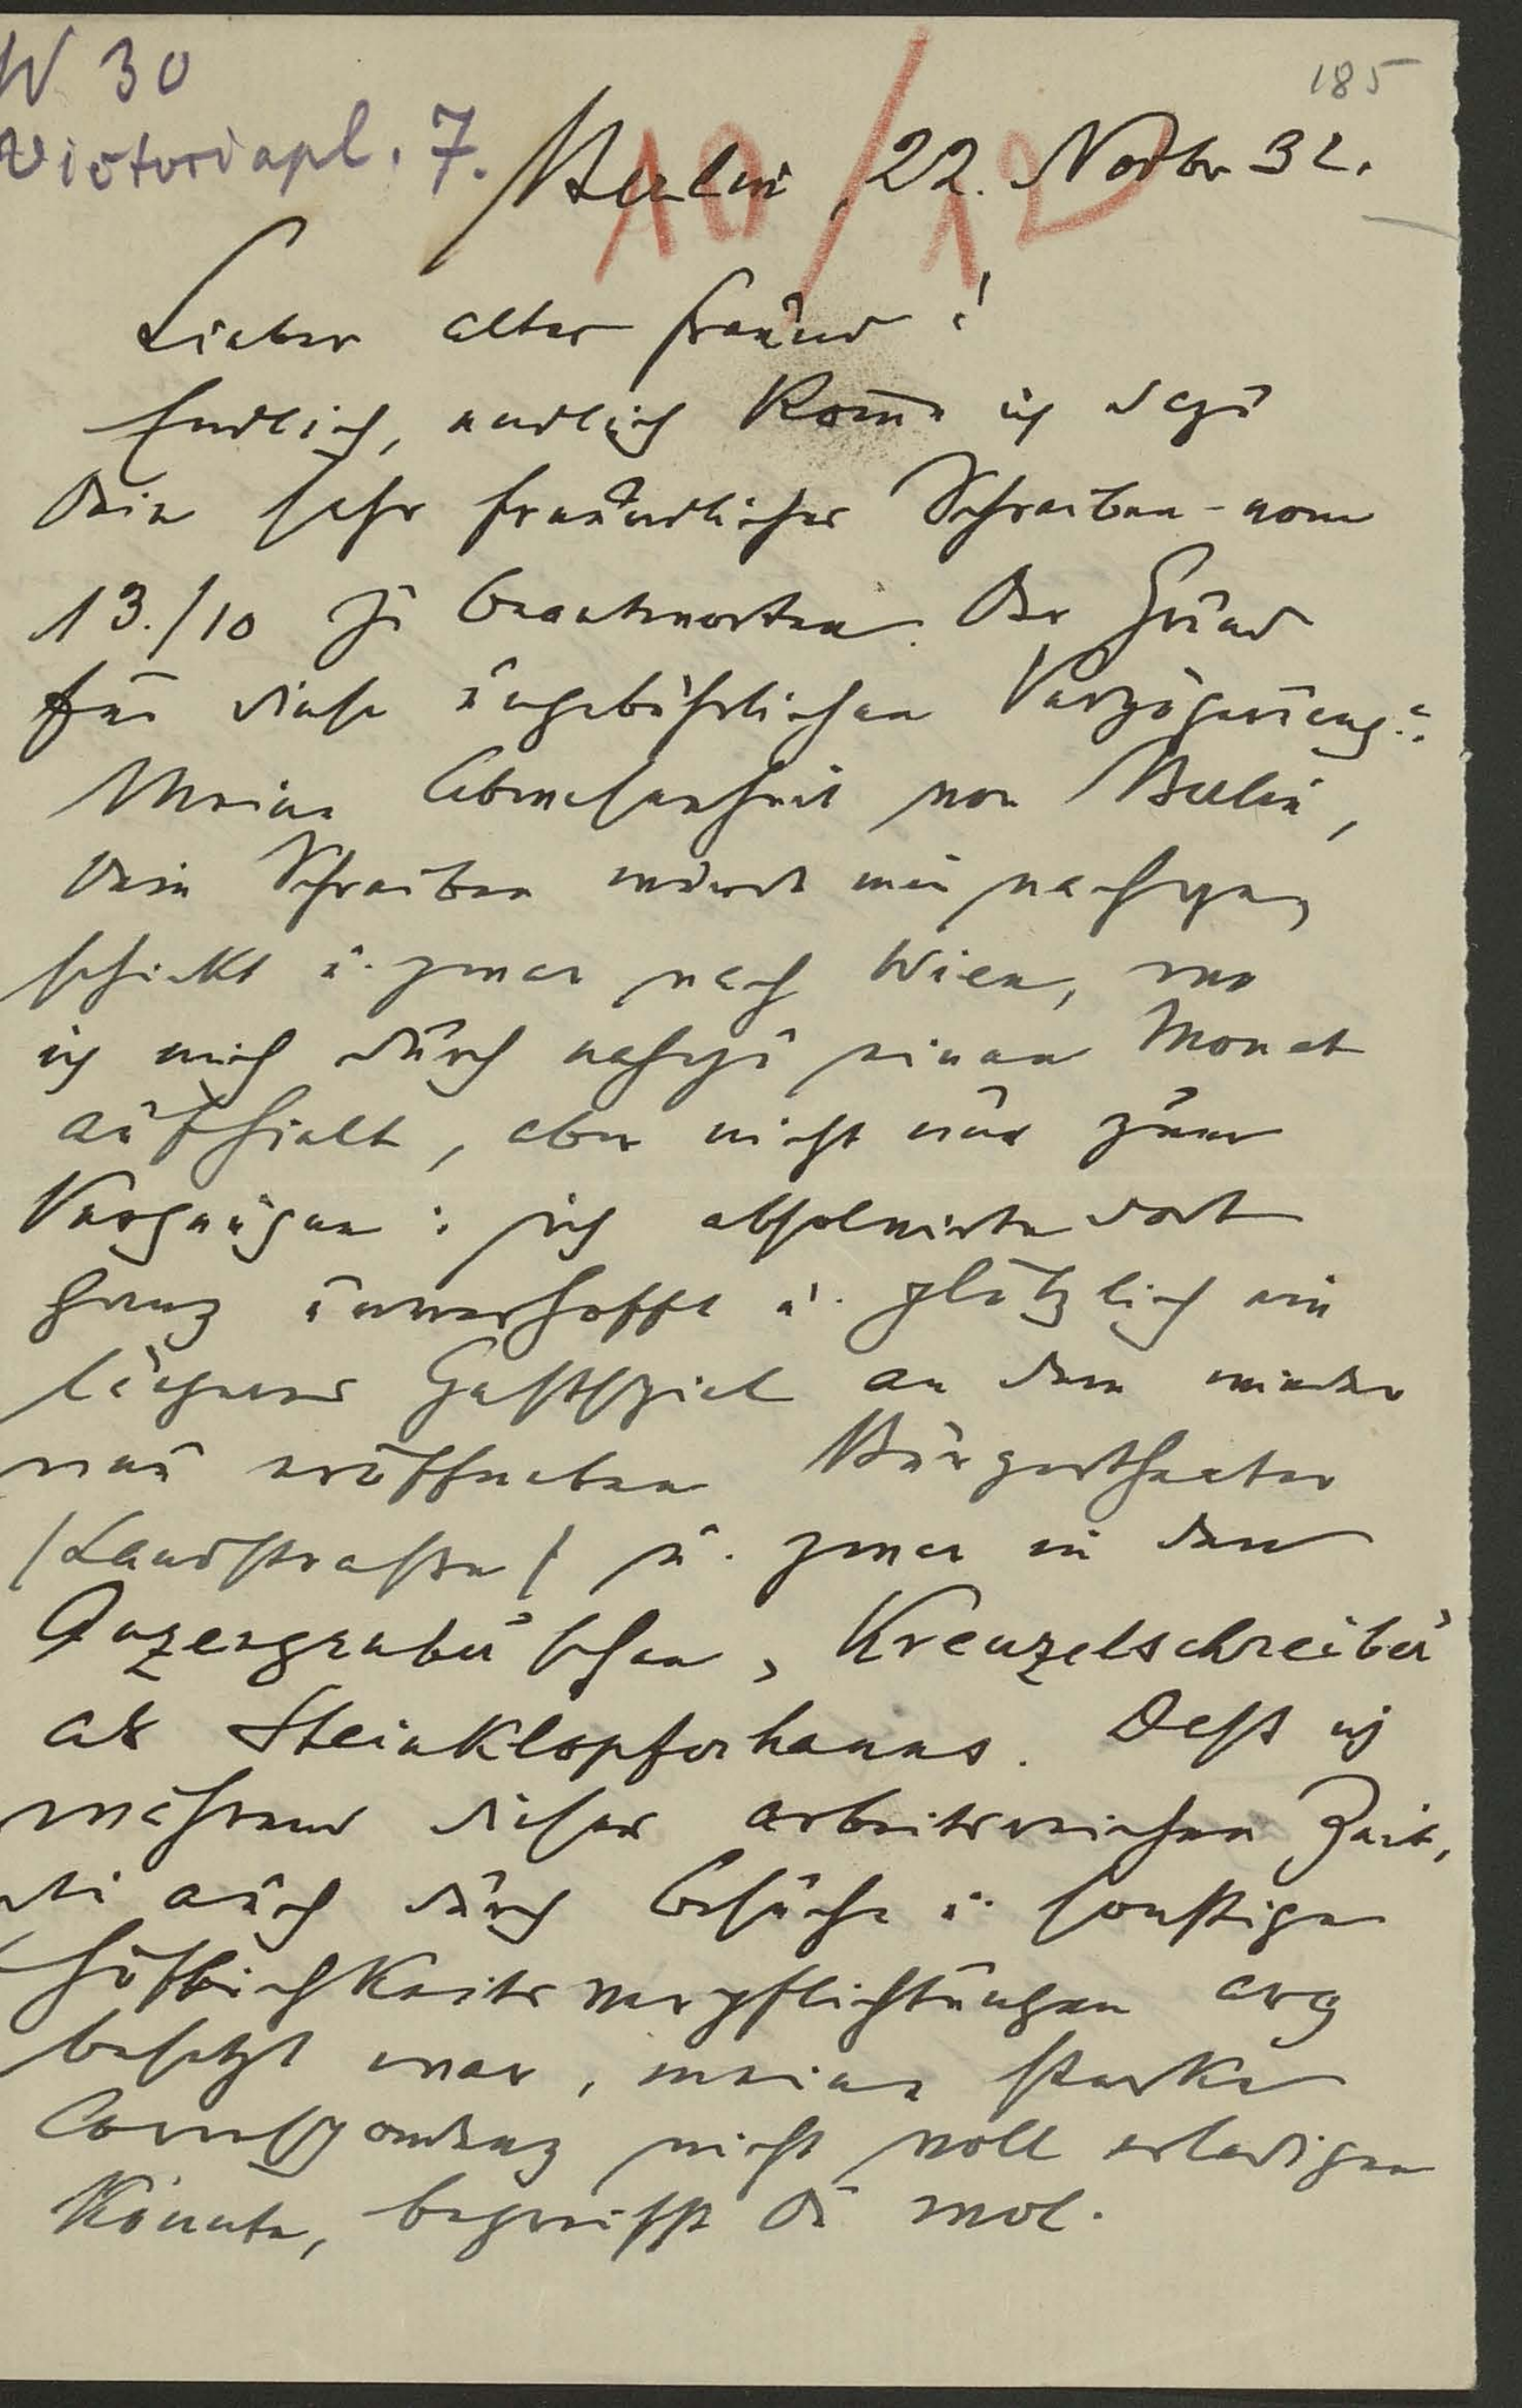 185
W 30
Victoriapl. 7.
Berlin, 22. Novbr 32.
10/12
Lieber alter Freund!
Endlich, endlich komme ich dazu
Dein sehr freundliches Schreiben vom
13./10 zu beantworten. Der Grund
für diese ungebührlichen Verzögerung:
Meine Abwesenheit von Berlin,
Dein Schreiben wurde mir nachge-
schickt u. zwar nach Wien, wo
ich mich durch nahezu einen Monat
aufhielt, aber nicht nur zum
Vergnügen: ich absolvirte dort
ganz unverhofft u. plötzlich ein
längeres Gastspiel an dem wieder
neu eröffneten Bürgertheater
/Landstraße/ u. zwar in den
Anzengruber'schen „Kreuzelschreiber"
als Steinklopferhanns. Daß ich
während dieser arbeitsreichen Zeit,
die auch durch Besuche u. sonstige
Höflichkeitsverpflichtungen arg
besetzt war, meine starke
Correspondenz nicht voll erledigen
konnte, begreifst Du wol.